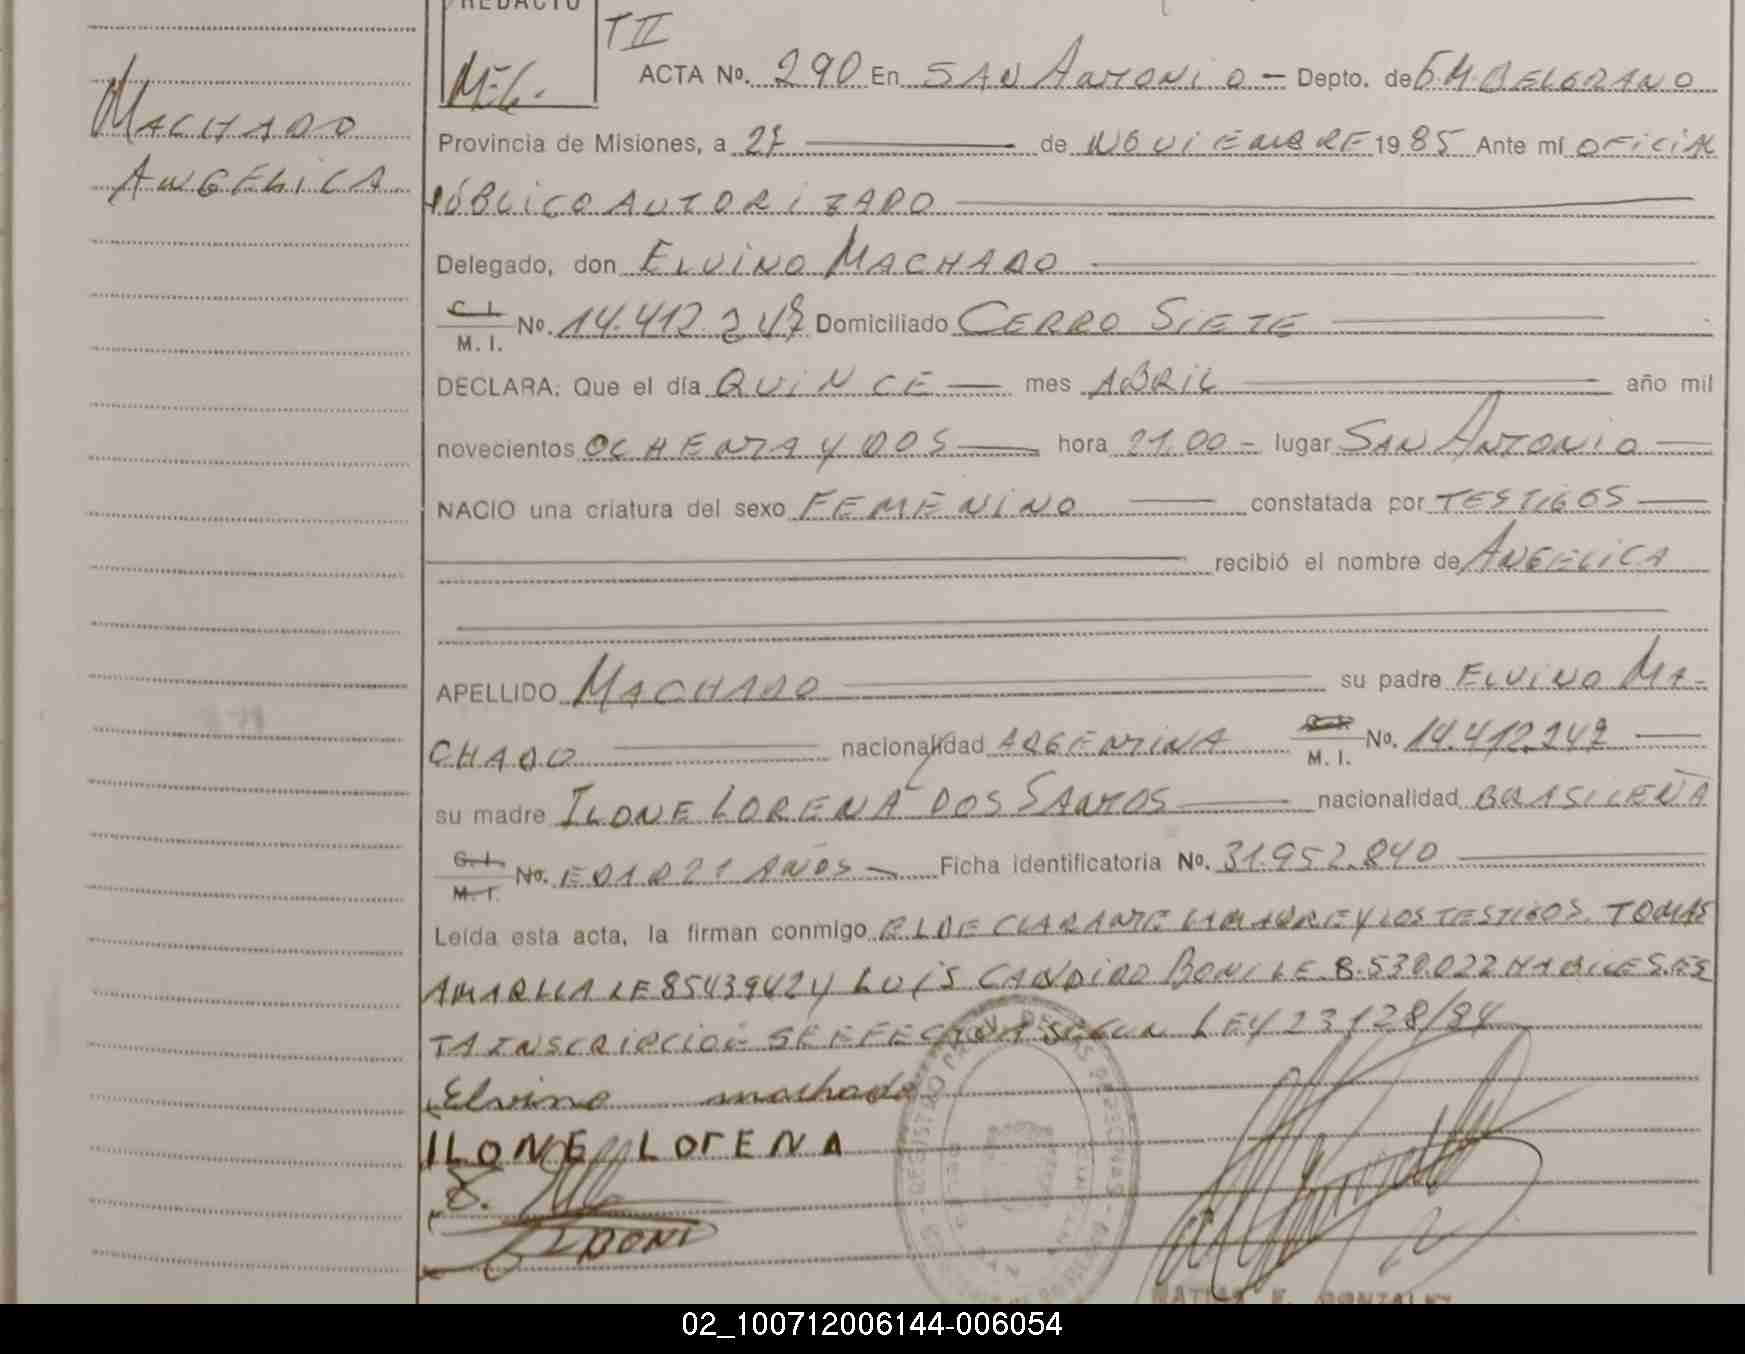 REDACTO
TII
M-G.
ACTA No. 290 En SAN ANTONIO - Depto. de G.M. BELGRANO
MACHADO
ANGELICA
Provincia de Misiones, a 27 de NOVIEMBRE 1985 Ante mí OFICIAL
PÚBLICO AUTORIZADO
Delegado, don ELVINO MACHADO
C. I.
M. I.
No. 14.412.247 Domiciliado CERRO SIETE
DECLARA: Que el día QUINCE mes ABRIL año mil
novecientos OCHENTA Y DOS hora 21.00 - lugar SAN ANTONIO
NACIO una criatura del sexo FEMENINO constatada por TESTIGOS
recibió el nombre de ANGELICA
APELLIDO MACHADO su padre ELVINO MA-
CHADO nacionalidad ARGENTINA M. I. No. 14.412.247
su madre ILONE LORENA DOS SANTOS nacionalidad BRASILEÑA
C. I.
M. I.
No. EDAD 21 AÑOS Ficha identificatoria No. 31.952.840
Leída esta acta, la firman conmigo EL DECLARANTE LA MADRE Y LOS TESTIGOS TOMAS
AMARILLA LE 8543942 Y LUIS CANDIDO BONI LE 8.530.022 HABILES. ES
TA INSCRIPCION SE EFECTUA SEGUN LEY 23128/84
Elvino machado
ILONE LORENA
BONI
02_100712006144-006054